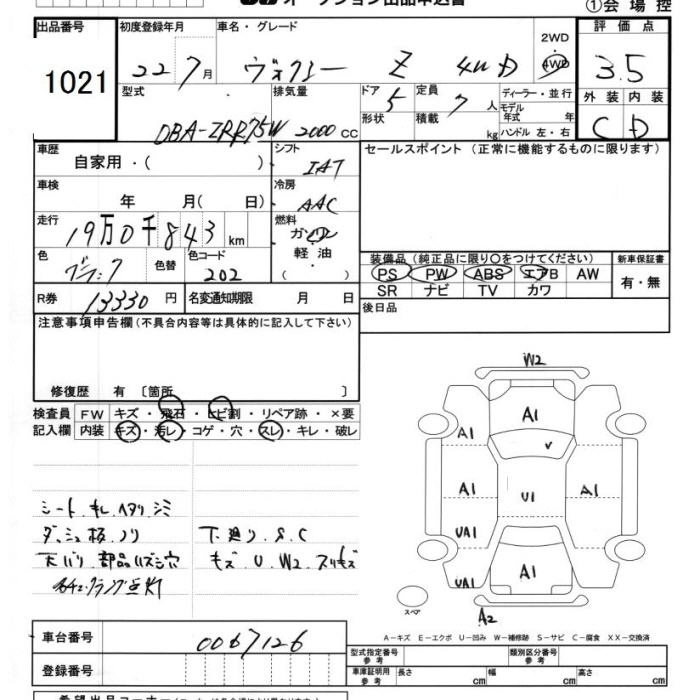 オークション出品申込書
①会場控
出品番号 初度登録年月 車名・グレード 2WD 4WD 評価点
1021 22 7月 ヴォクシー Z 4WD 3.5
型式 排気量 ドア 5 定員 7人 ディーラー・並行 外装 内装
DBA-ZRR75W 2000cc 形状 積載 kg モデル年式 年 C D
ハンドル 左・右
車歴 シフト セールスポイント (正常に機能するものに限ります)
自家用・( ) IAT
車検 冷房
年 月( 日) AAC
走行 燃料
19万0千843km ガソリン
色 色替 色コード 軽油 装備品 (純正品に限り〇をつけてください) 新車保証書
ブラック 202 (・) PS PW ABS エアB AW 有・無
SR ナビ TV カワ
R券 13330円 名変通知期限 月 日 後日品
注意事項申告欄 (不具合内容等は具体的に記入して下さい)
修復歴 有 〔箇所 〕
検査員 FW キズ・飛石・ヒビ割・リペア跡・×要
記入欄 内装 キズ・汚レ・コゲ・穴・スレ・キレ・破レ
シート キレ ヘタリ シミ
ダッシュ板 ノリ 下廻り S.C
天バリ 部品ハズシ穴 キズ U W2 スリキズ
点灯
W2
A1
A1
A1 U1 A1
UA1
UA1 A1
スペア A2
A-キズ E-エクボ U-凹み W-補修跡 S-サビ C-腐食 XX-交換済
車台番号 0067126
型式指定番号 参考 類別区分番号 参考
登録番号 車庫証明用 参考 長さ cm 幅 cm 高さ cm